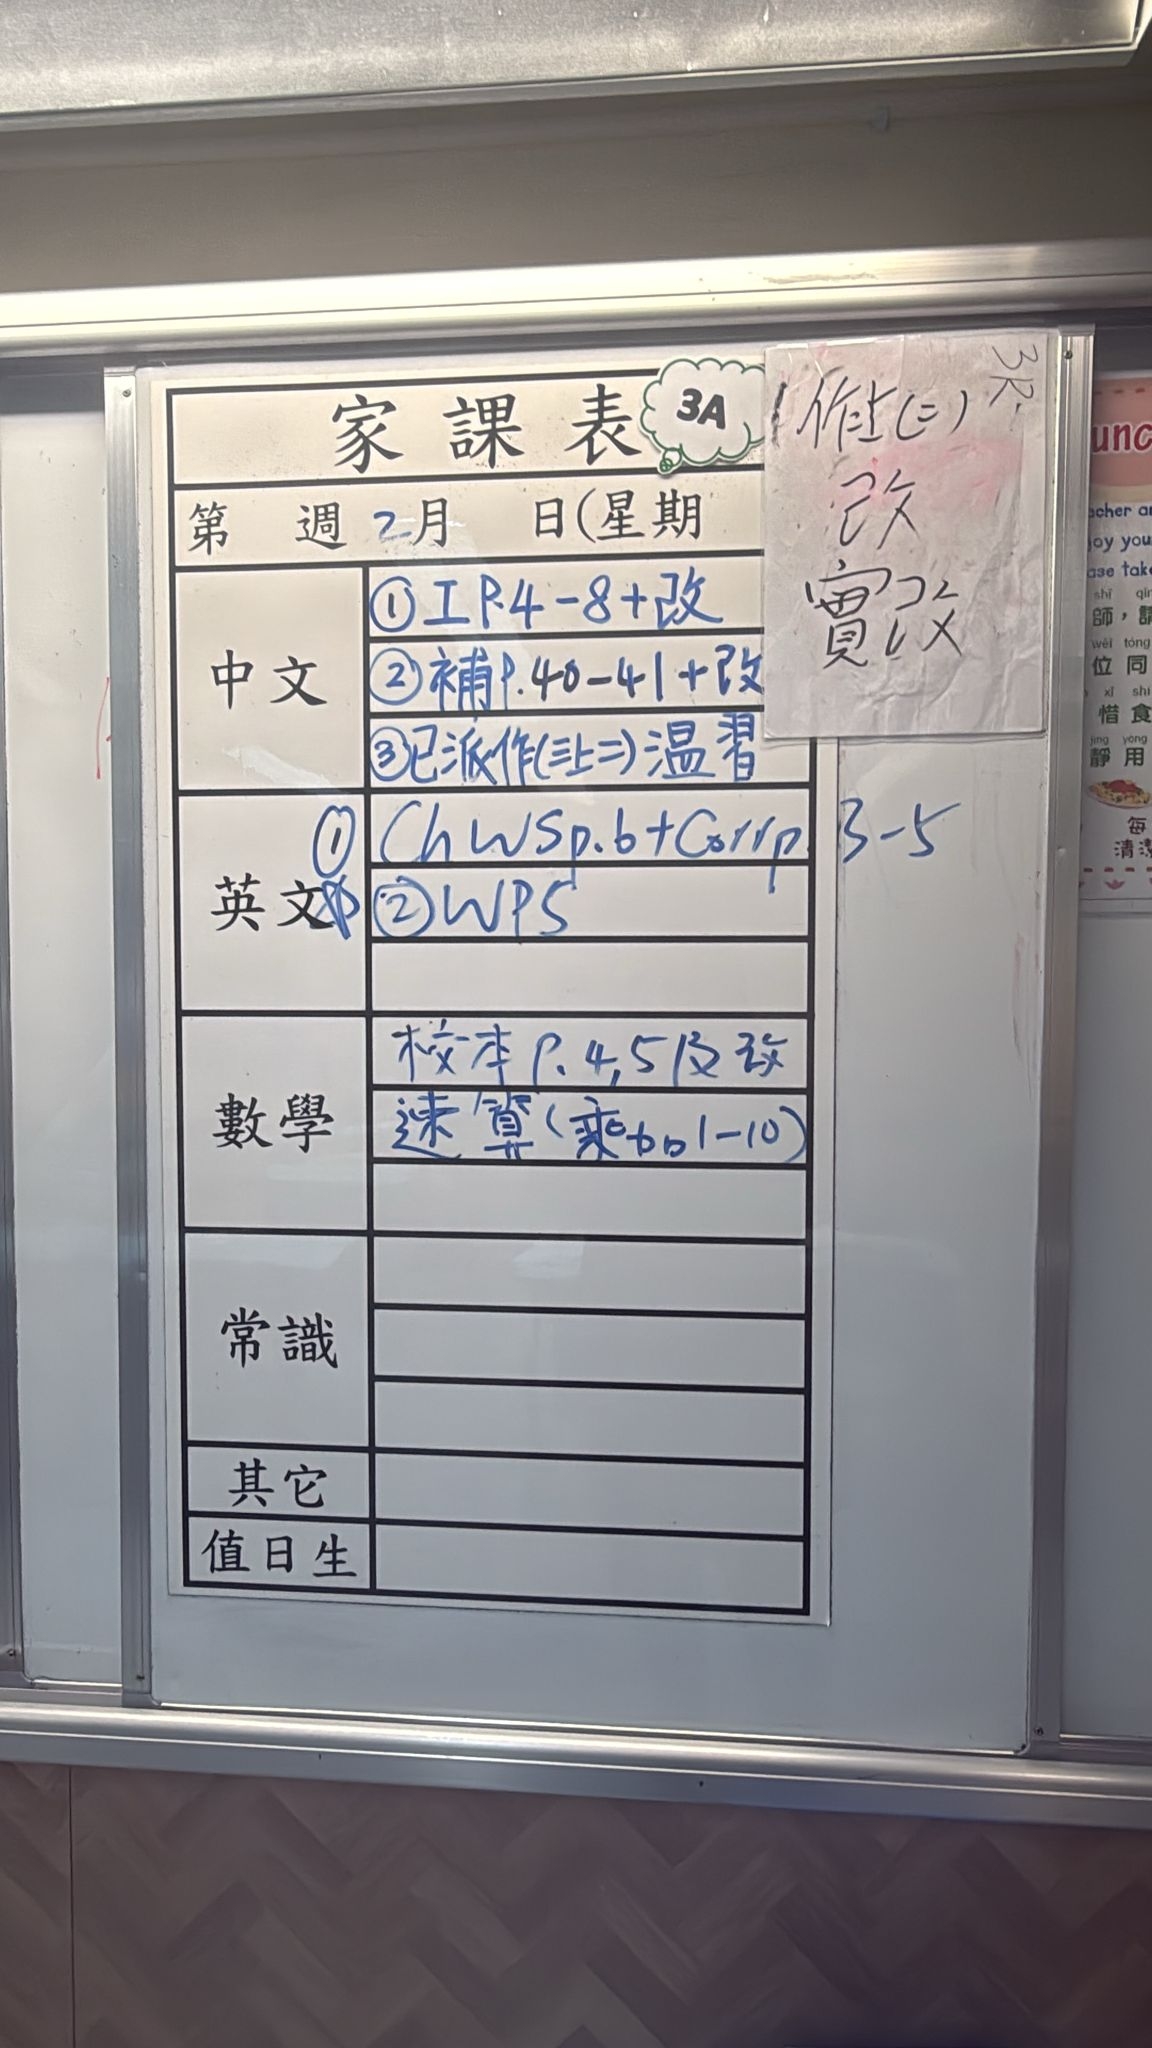 家課表
3A
第 週 2月 日(星期
中文
①工P.4-8+改
②補P.40-41+改
③已派作(三上二)溫習
英文
① Ch WS p.6+Corr p. 3-5
②WPS
數學
校本P.4,5及改
速算(乘加1-10)
常識
其它
值日生
作上(二)
改
實改
unc
acher an
joy you
ase take
shī qǐn
師，請
wèi tóng
位同
xī shí
惜食
jìng yòng
靜用
每
清潔